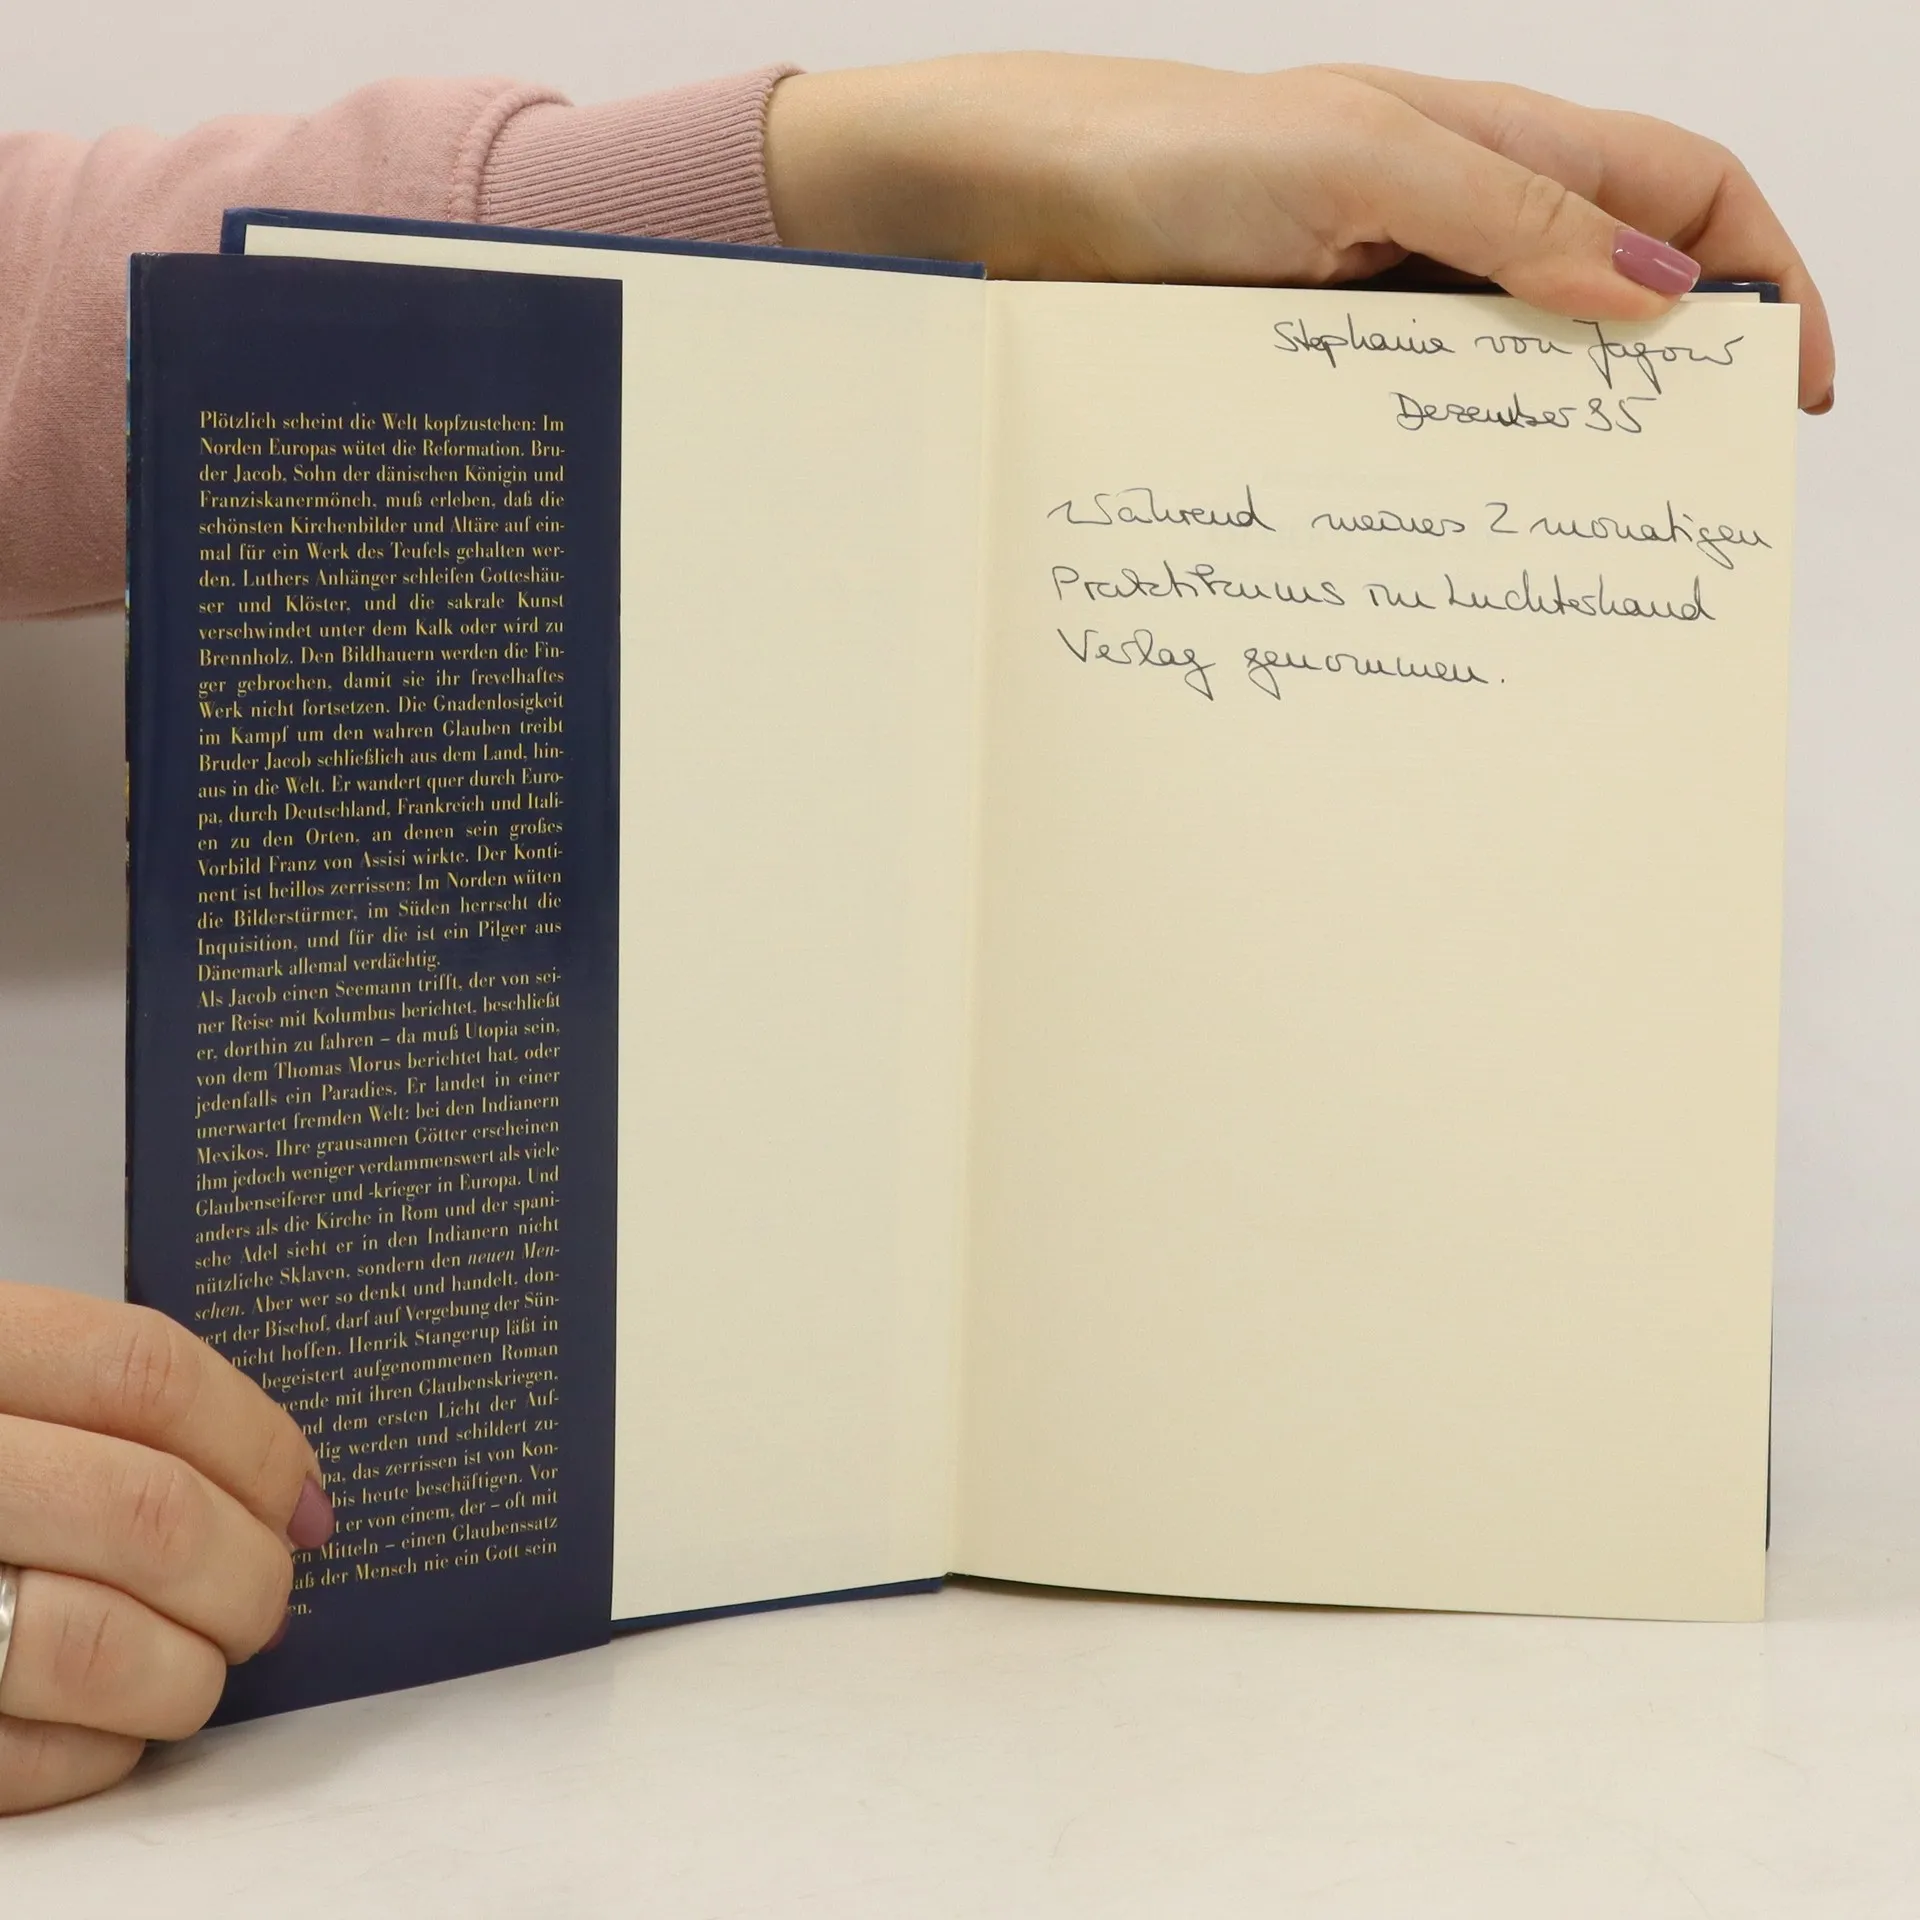 Plötzlich scheint die Welt kopfzustehen: Im
Norden Europas wütet die Reformation. Bru-
der Jacob, Sohn der dänischen Königin und
Franziskanermönch, muß erleben, daß die
schönsten Kirchenbilder und Altäre auf ein-
mal für ein Werk des Teufels gehalten wer-
den. Luthers Anhänger schleifen Gotteshäu-
ser und Klöster, und die sakrale Kunst
verschwindet unter dem Kalk oder wird zu
Brennholz. Den Bildhauern werden die Fin-
ger gebrochen, damit sie ihr frevelhaftes
Werk nicht fortsetzen. Die Gnadenlosigkeit
im Kampf um den wahren Glauben treibt
Bruder Jacob schließlich aus dem Land, hin-
aus in die Welt. Er wandert quer durch Euro-
pa, durch Deutschland, Frankreich und Itali-
en zu den Orten, an denen sein großes
Vorbild Franz von Assisi wirkte. Der Konti-
nent ist heillos zerrissen: Im Norden wüten
die Bilderstürmer, im Süden herrscht die
Inquisition, und für die ist ein Pilger aus
Dänemark allemal verdächtig.
Als Jacob einen Seemann trifft, der von sei-
ner Reise mit Kolumbus berichtet, beschließt
er, dorthin zu fahren – da muß Utopia sein,
von dem Thomas Morus berichtet hat, oder
jedenfalls ein Paradies. Er landet in einer
unerwartet fremden Welt: bei den Indianern
Mexikos. Ihre grausamen Götter erscheinen
ihm jedoch weniger verdammenswert als viele
Glaubenseiferer und -krieger in Europa. Und
anders als die Kirche in Rom und der spani-
sche Adel sieht er in den Indianern nicht
nützliche Sklaven, sondern den neuen Men-
schen. Aber wer so denkt und handelt, don-
nert der Bischof, darf auf Vergebung der Sün-
nicht hoffen. Henrik Stangerup läßt in
begeistert aufgenommenen Roman
wende mit ihren Glaubenskriegen,
nd dem ersten Licht der Auf-
dig werden und schildert zu-
pa, das zerrissen ist von Kon-
bis heute beschäftigen. Vor
t er von einem, der – oft mit
en Mitteln – einen Glaubenssatz
aß der Mensch nie ein Gott sein
en.
Stephanie von Jagow
Dezember 95
Während meines 2 monatigen
Praktikums im Luchterhand
Verlag genommen.